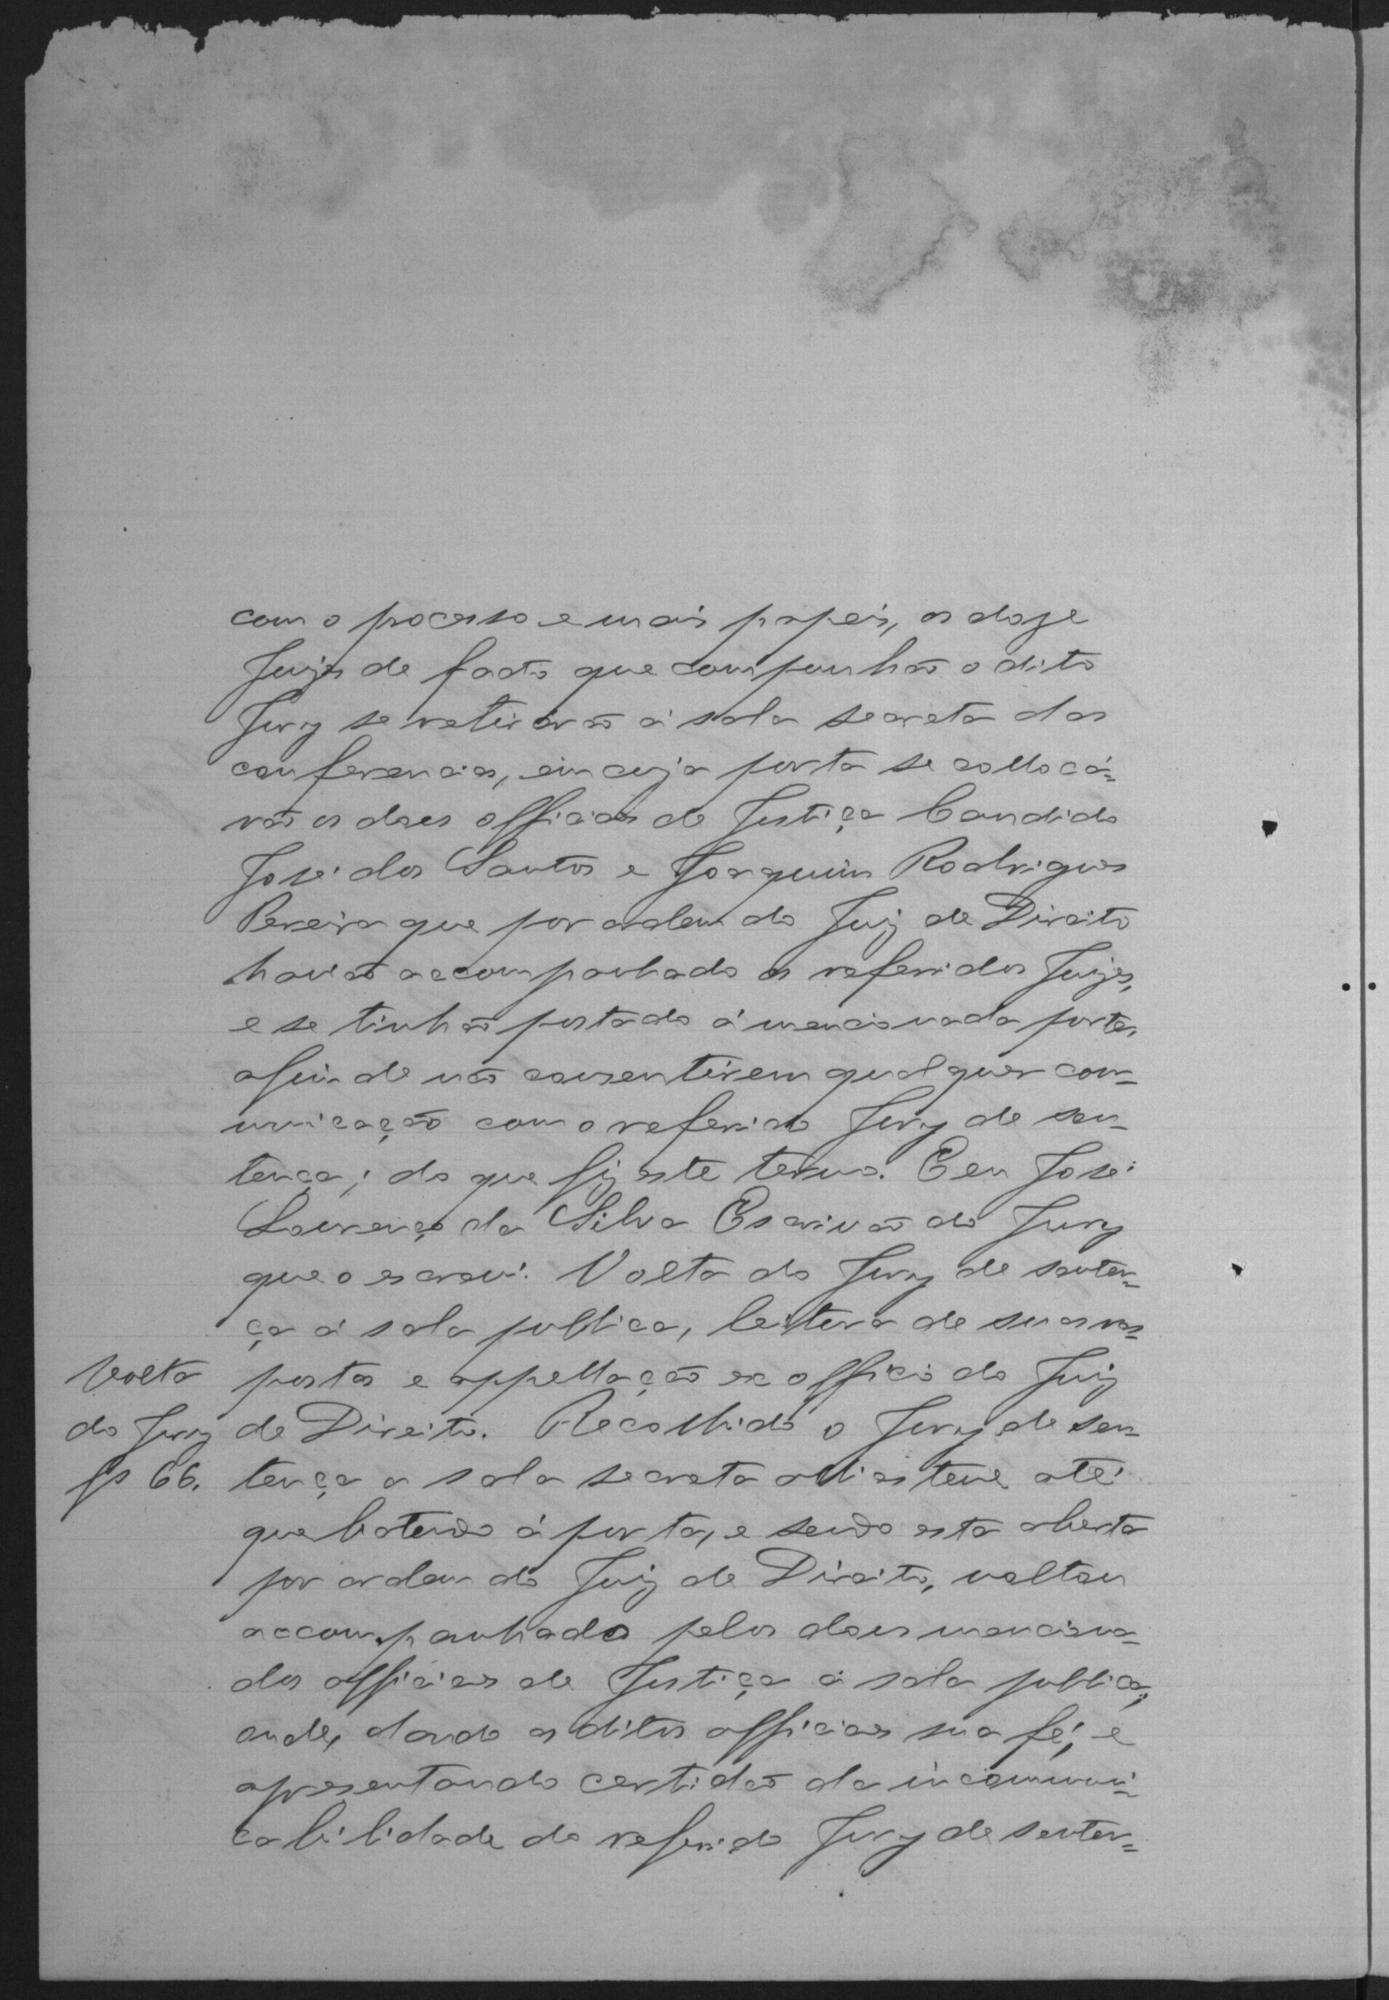 com o processo e mais papeis, os doze
Juizes de facto que compunhão o dito
Jury se retirárão á sala secreta das
conferencias, em cuja porta se collocá=
rão os dous officiaes de Justiça Candido
José dos Santos e Joaquim Rodrigues
Pereira que por ordem do Juiz de Direito
havião accompanhado os referidos Juizes,
e se tinhão postado á mencionada porta,
afim de não consentirem qualquer com=
municação com o referido Jury de sen=
tença; do que fiz este termo. E eu José
Lourenço da Silva Escrivão do Jury
que o escrevi. Volta do Jury de senten=
ça á sala publica, leitura de suas res=
postas e appellação ex officio do Juiz
de Direito. Recolhido o Jury de sen=
tença a sala secreta ali esteve até
que batendo á porta, e sendo esta aberta
por ordem do Juiz de Direito, voltou
accompanhado pelos dous menciona=
dos officiaes de Justiça á sala publica,
onde, dando os ditos officiaes sua fé, e
apresentando certidão da incommuni=
cabilidade do referido Jury de senten=
Volta
do Jury
fs 66.